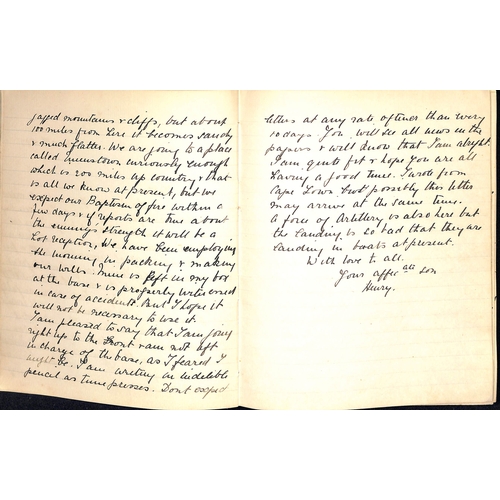 jagged mountains & cliffs, but at about
100 miles from here it becomes sandy
& much flatter. We are going to a place
called Queenstown curiously enough
which is 200 miles up country & that
is all we know at present, but we
expect our Baptism of fire within a
few days & if reports are true about
the enemy's strength it will be a
hot reception, We have been employing
the morning in packing & making
our wills. Mine is left in my box
at the base & is properly witnessed
in case of accidents. But I hope it
will not be necessary to use it.
I am pleased to say that I am going
right up to the front & am not left
in charge of the base, as I feared I
might be. I am writing in indelible
pencil as time presses. Dont expect
letters at any rate oftener than every
10 days. You will see all news in the
papers & will know that I am alright.
I am quite fit & hope you are all
having a good time. I wrote from
Cape Town but possibly this letter
may arrive at the same time.
A force of Artillery is also here but
the landing is so bad that they are
landing in boats at present.
With love to all.
Your affec ate son
Henry.